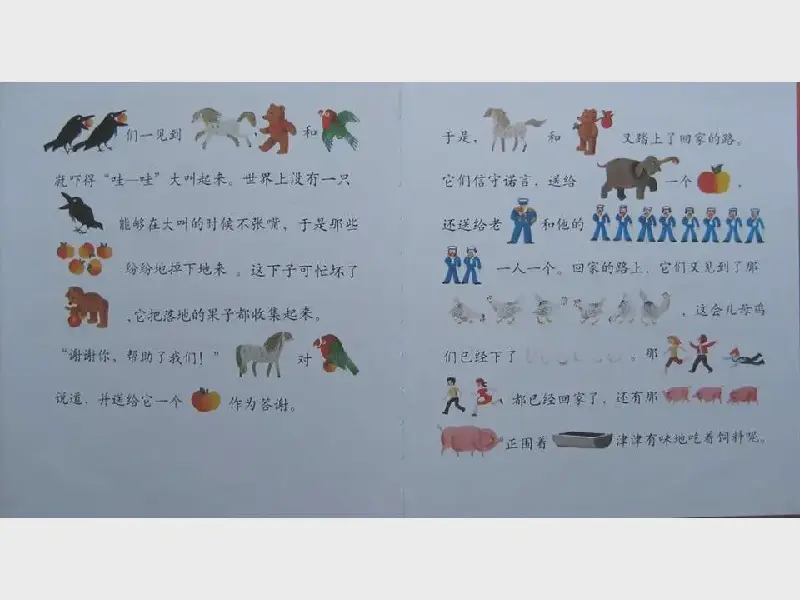 们一见到 、 和
就吓得“哇—哇”大叫起来。世界上没有一只
能够在大叫的时候不张嘴，于是那些
纷纷地掉下地来。这下子可忙坏了
，它把落地的果子都收集起来。
“谢谢你，帮助了我们！” 对
说道，并送给它一个 作为答谢。
于是， 和 又踏上了回家的路。
它们信守诺言，送给 一个 ，
还送给老 和他的
一人一个。回家的路上，它们又见到了那
，这会儿母鸡
们已经下了 。那
、都已经回家了，还有那
正围着 津津有味地吃着饲料呢。